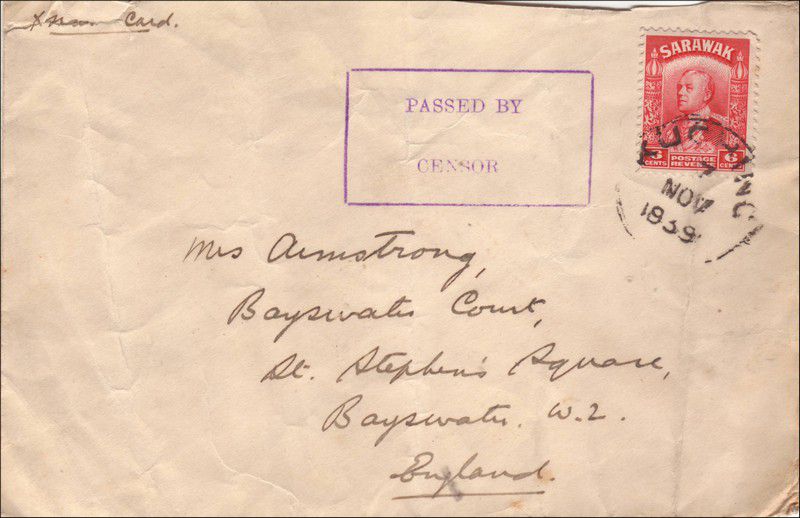 Xmas Card.
SARAWAK
PASSED BY
CENSOR
6 POSTAGE 6
CENTS REVENUE CENTS
KUCHING
7
NOV
1839
Mrs Armstrong,
Bayswater Court,
St. Stephen's Square,
Bayswater. W.2.
England.